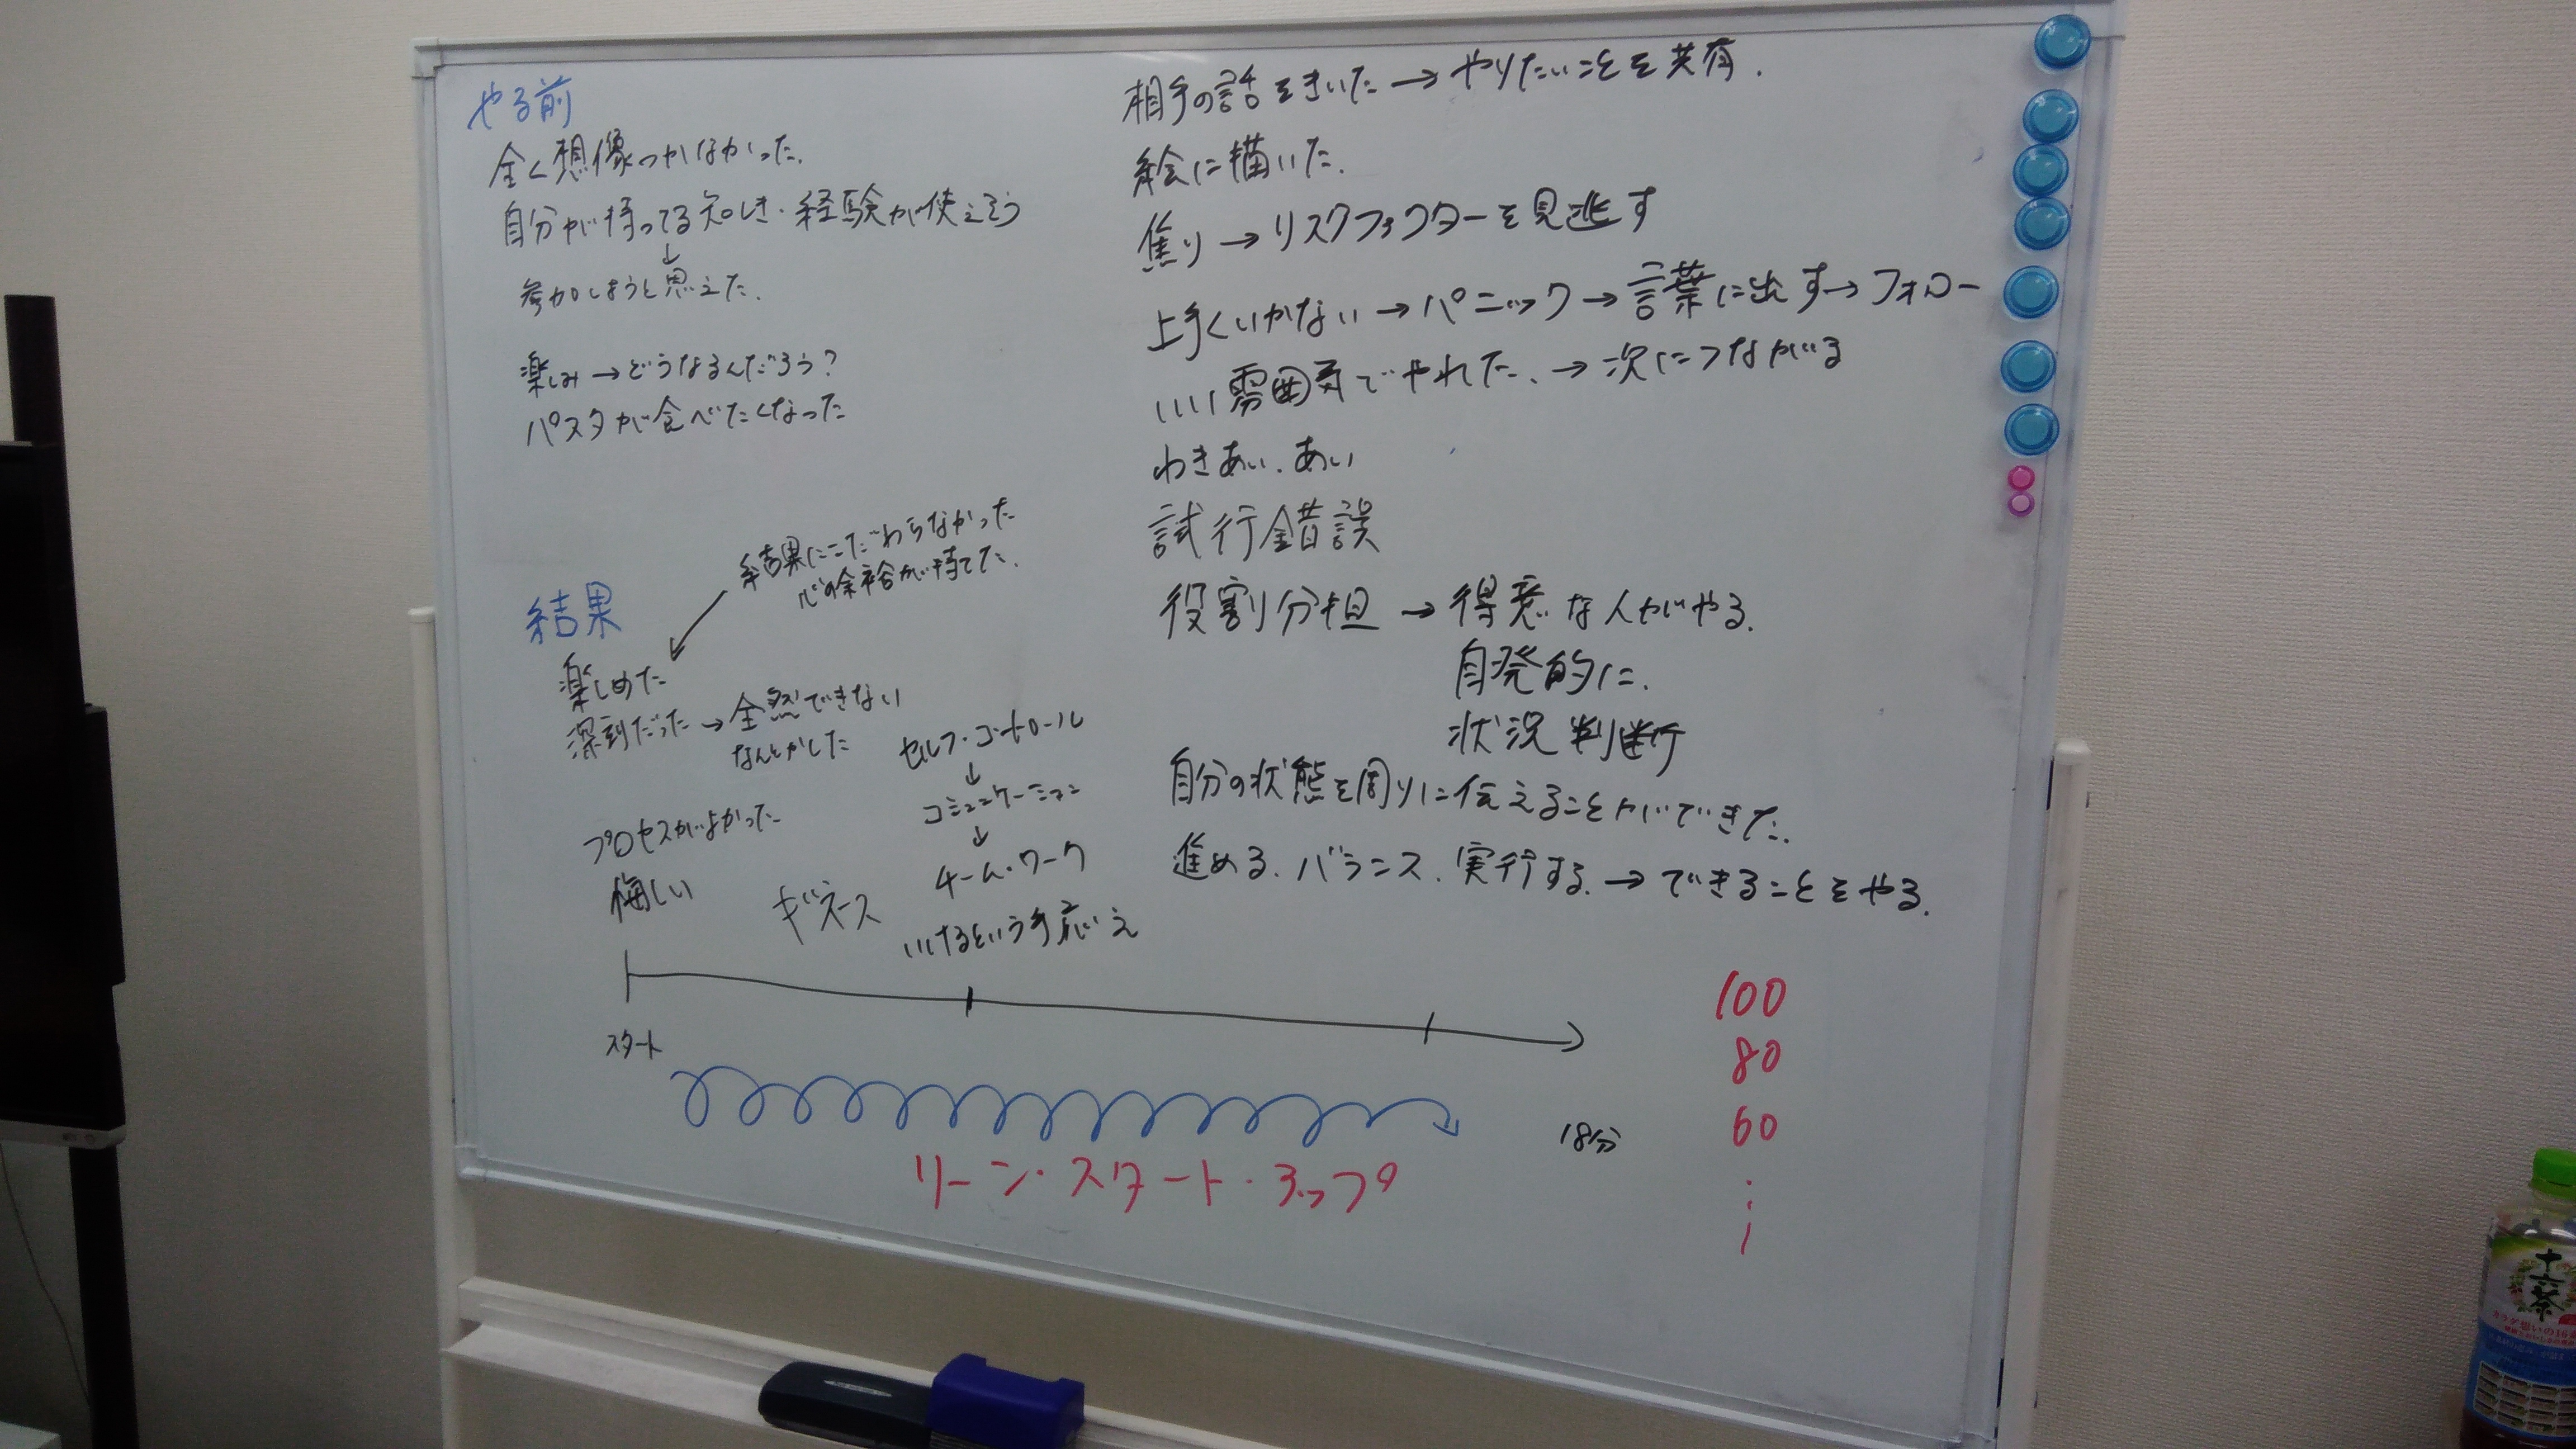 やる前
全く想像つかなかった.
自分が持ってる知しき・経験が使えそう
↓
参加しようと思えた.
楽しみ→どうなるんだろう?
パスタが食べたくなった
結果にこだわらなかった
心の余裕が持てた.
結果
楽しめた
深刻だった→全然できない
なんとかした
プロセスがよかった
悔しい
セルフ・コントロール
↓
コミュニケーション
↓
チーム・ワーク
ギネース
いけるという手応え
相手の話をきいた→やりたいことを共有.
絵に描いた.
焦り→リスクファクターを見逃す
上手くいかない→パニック→言葉に出す→フォロー
いい雰囲気でやれた.→次につながる
わきあい.あい
試行錯誤
役割分担→得意な人がやる.
自発的に.
状況判断
自分の状態を周りに伝えることができた.
進める.バランス.実行する.→できることをやる.
スタート
18分
リーン・スタート・アップ
100
80
60
十六茶